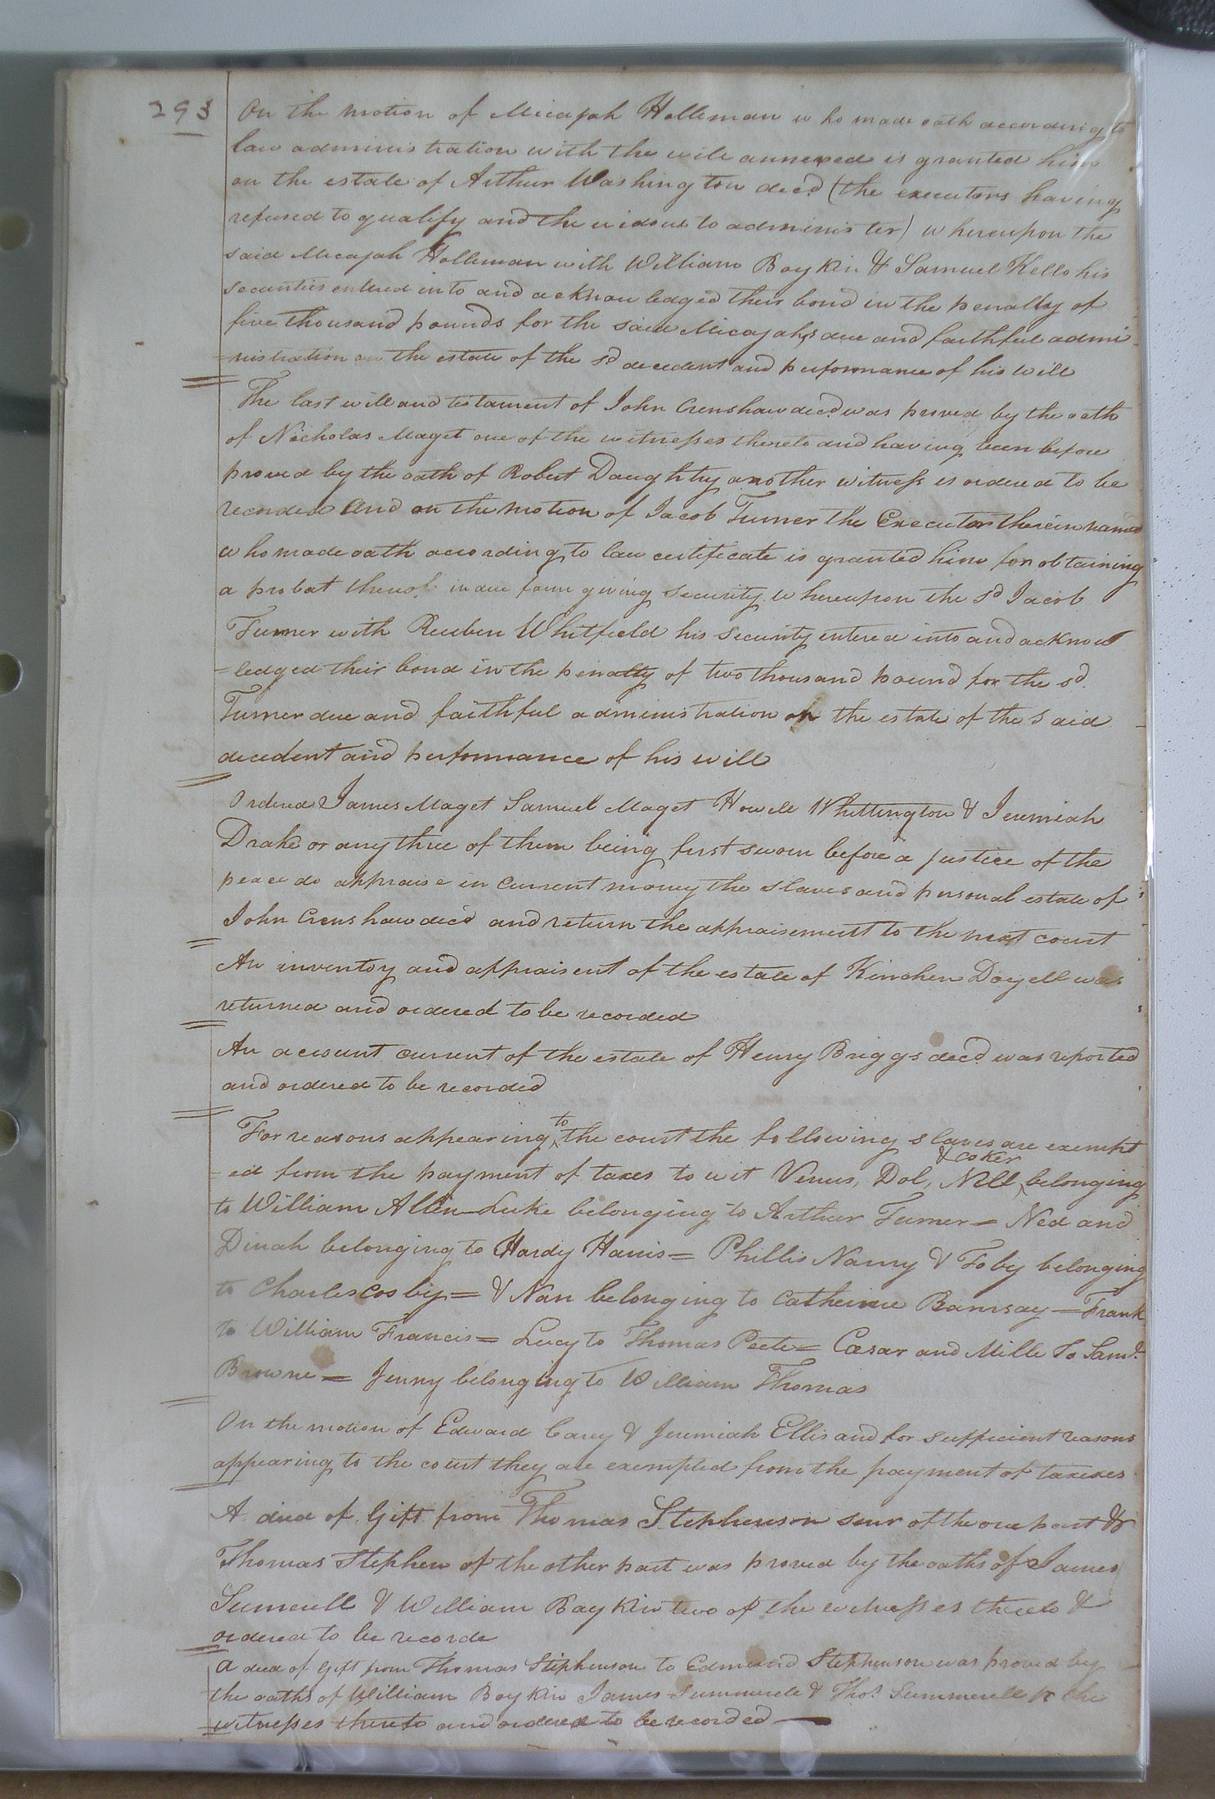 293
On the motion of Micajah Holleman who made oath according to
law administration with the will annexed is granted him
on the estate of Arthur Washington decd (the executors having
refused to qualify and the widow to administer) whereupon the
said Micajah Holleman with William Boykin & Samuel Kello his
securities entered into and acknowledged their bond in the penalty of
five thousand pounds for the said Micajahs due and faithful admi
-nistration on the estate of the sd decedent and performance of his will
The last will and testament of John Crenshaw decd was proved by the oath
of Nicholas Maget one of the witnesses thereto and having been before
proved by the oath of Robert Daughtry another witness is ordered to be
recorded And on the motion of Jacob Turner the Executor therein named
who made oath according to law certificate is granted him for obtaining
a probat thereof in due form giving security whereupon the sd Jacob
Turner with Reuben Whitfield his security entered into and acknow
=ledged their bond in the penalty of two thousand pound for the sd
Turner due and faithful administration on the estate of the said
decedent and performance of his will
Ordered James Maget Samuel Maget Howell Whittington & Jeremiah
Drake or any three of them being first sworn before a justice of the
peace do appraise in Current money the slaves and personal estate of
John Crenshaw decd and return the appraisement to the next court
An inventoy and appraisent of the estate of Kinchen Doyell was
returned and ordered to be recorded
An account current of the estate of Henry Briggs decd was reported
and ordered to be recorded
For reasons appearing to the court the following slaves are exempt
=ed from the payment of taxes to wit Venus, Dol, Nell & Coker belonging
to William Allen Luke belonging to Arthur Turner = Ned and
Dinah belonging to Hardy Harris = Phillis Nanny & Toby belonging
to Charles Cosby = & Nan belonging to Catherine Ramsay = Frank
to William Francis = Lucy to Thomas Peete = Cæsar and Mille To Saml.
Browne = Jenny belonging to William Thomas
On the motion of Edward Cary & Jeremiah Ellis and for sufficient reasons
appearing to the court they are exempted from the payment of taxes
A deed of Gift from Thomas Stephenson senr of the one part &
Thomas Stephen of the other part was proved by the oaths of James
Sumerell & William Boykin two of the witnesses thereto &
ordered to be recorde
A deed of Gift from Thomas Stephenson to Edmund Stephenson was proved by
the oaths of William Boykin James Summerele & Thos. Summerell the
witnesses thereto and ordered to be recorded